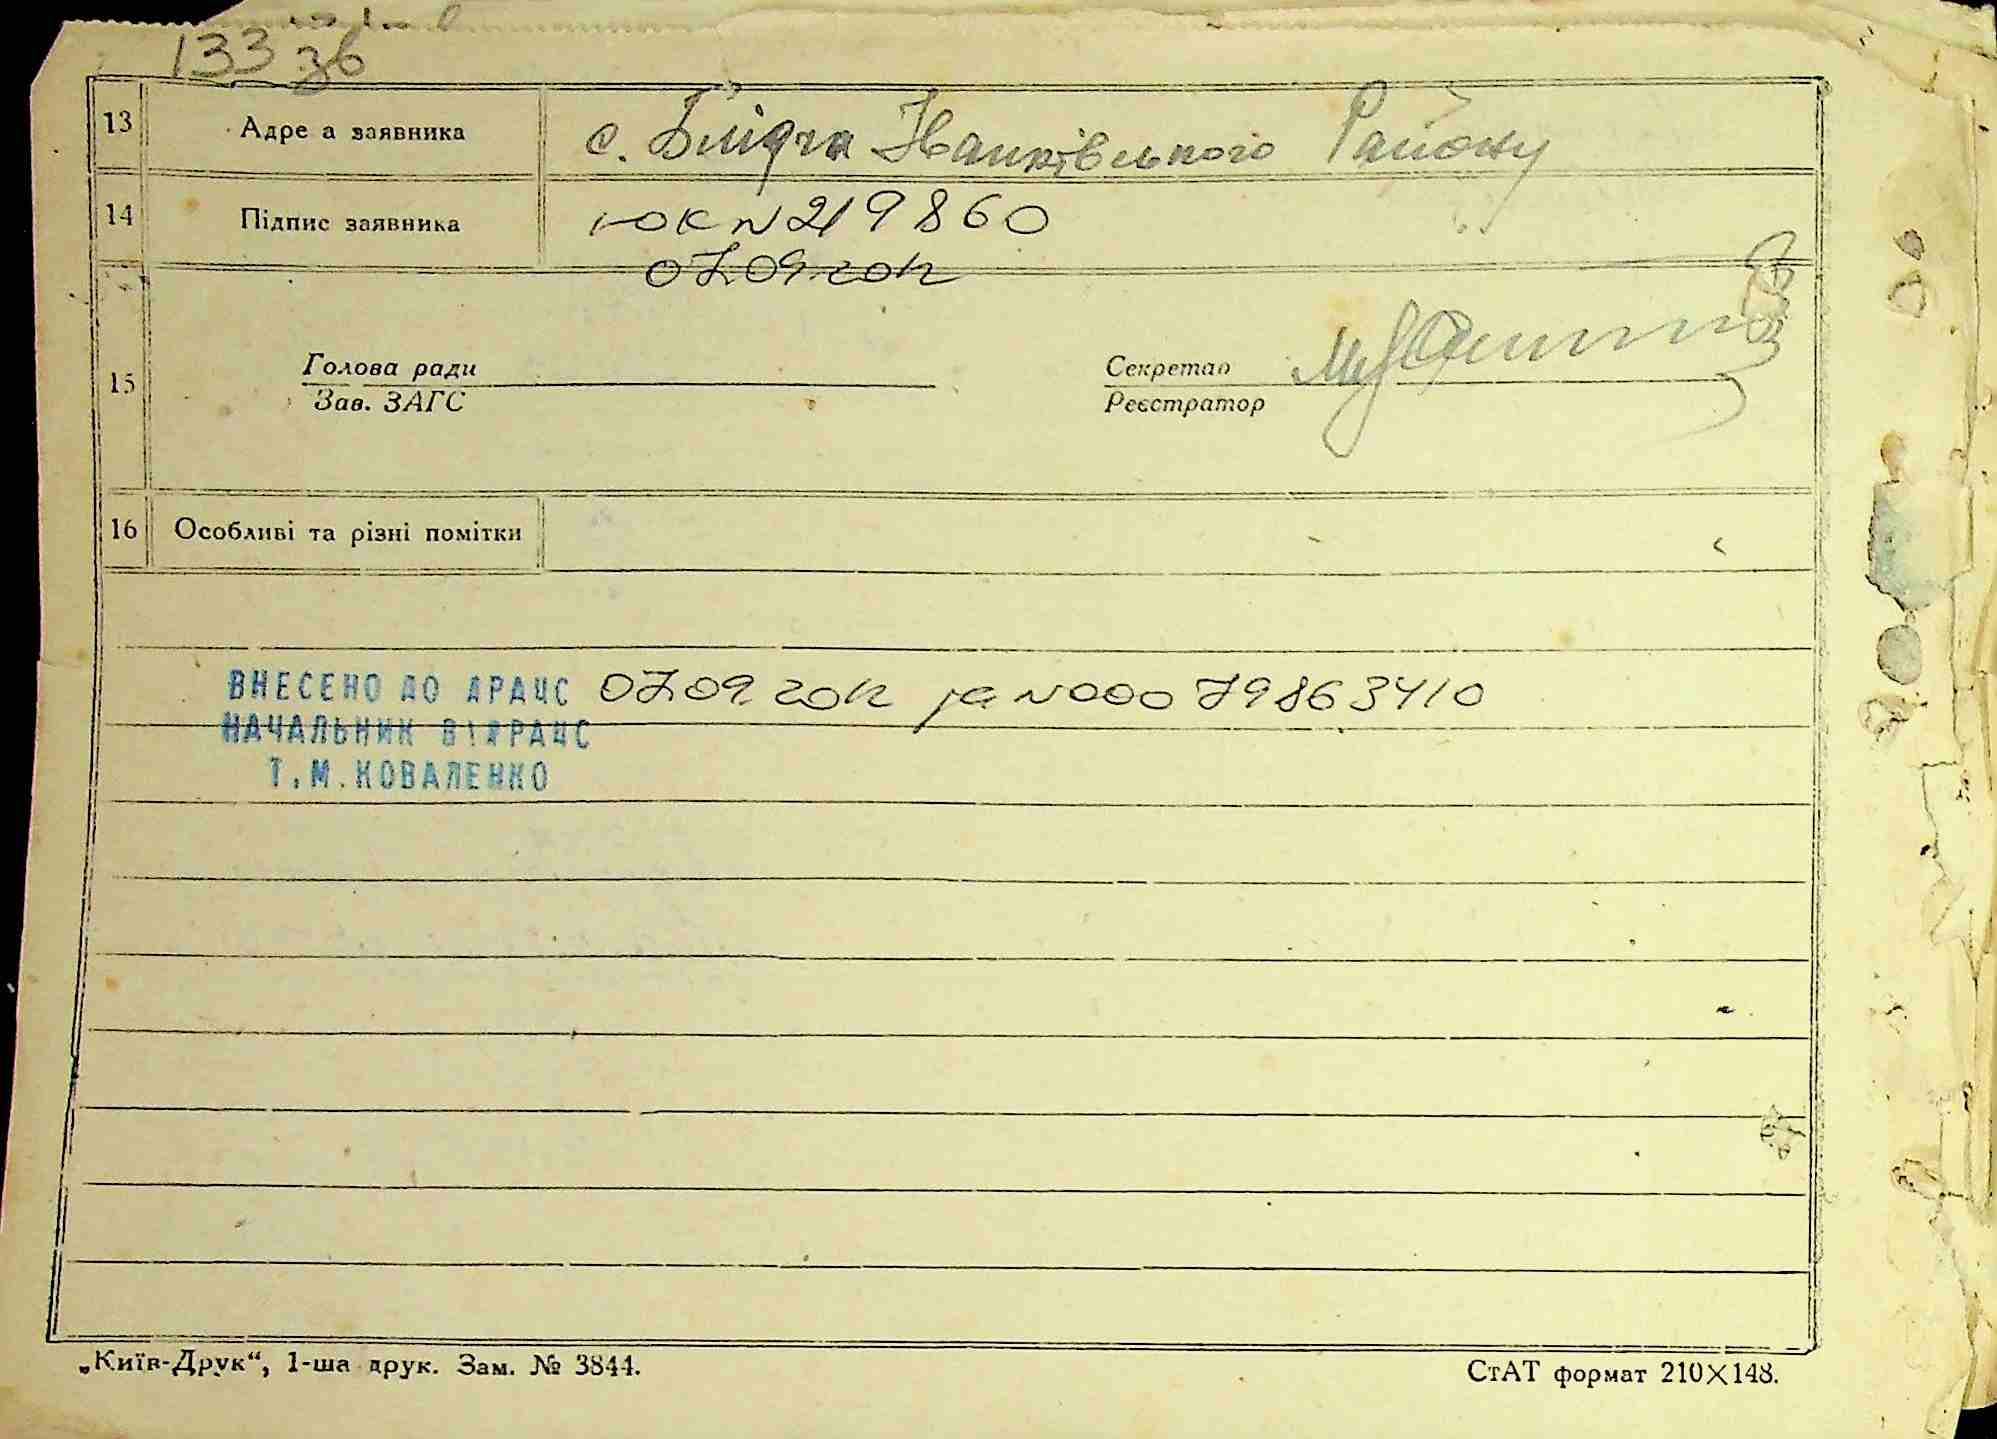 133 зв
13 Адре а заявника с. Блідча Іванківського Району
14 Підпис заявника І-ОК N 219860
07.09.2012
Голова ради Секретар
15
Зав. ЗАГС Реєстратор
16 Особливі та різні помітки
ВНЕСЕНО ДО ДРАЦС 07.09.2012 за N 00079863410
НАЧАЛЬНИК ВІДРАЦС
Т.М.КОВАЛЕНКО
„Київ-Друк“, 1-ша друк. Зам. № 3844. СтАТ формат 210×148.